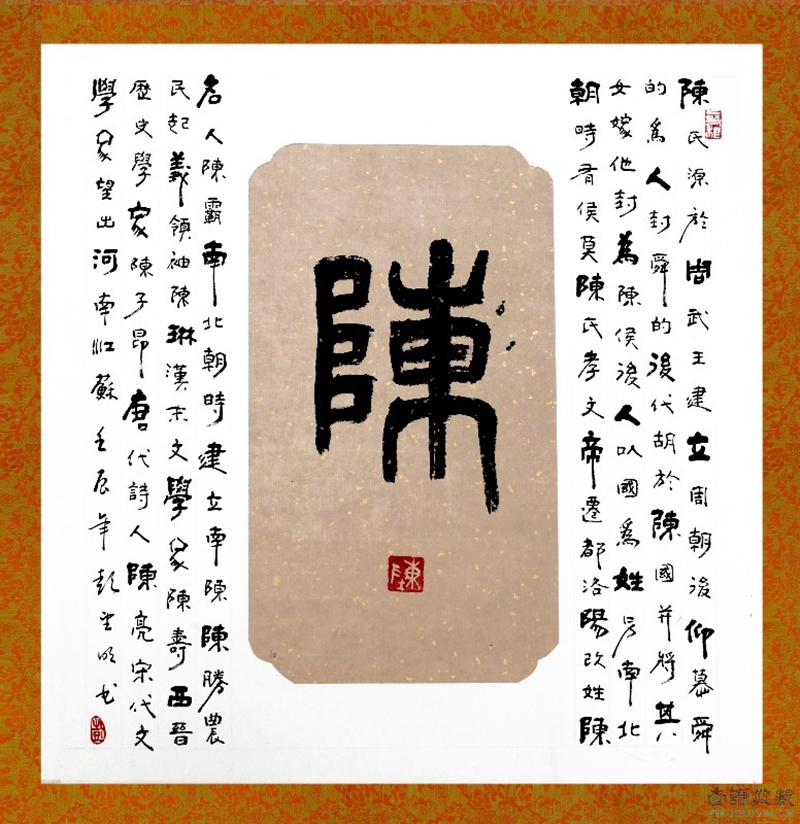 陳氏源於周武王建立周朝後仰慕舜
的為人封舜的後代胡於陳國并將其
女嫁他封為陳侯後人以國為姓另南北
朝時有侯莫陳氏孝文帝遷都洛陽改姓陳
陳
陳
名人陳霸南北朝時建立南陳陳勝農
民起義領袖陳琳漢末文學家陳壽西晉
歷史學家陳子昂唐代詩人陳亮宋代文
學家望出河南江蘇壬辰年彭明书
壹號收藏